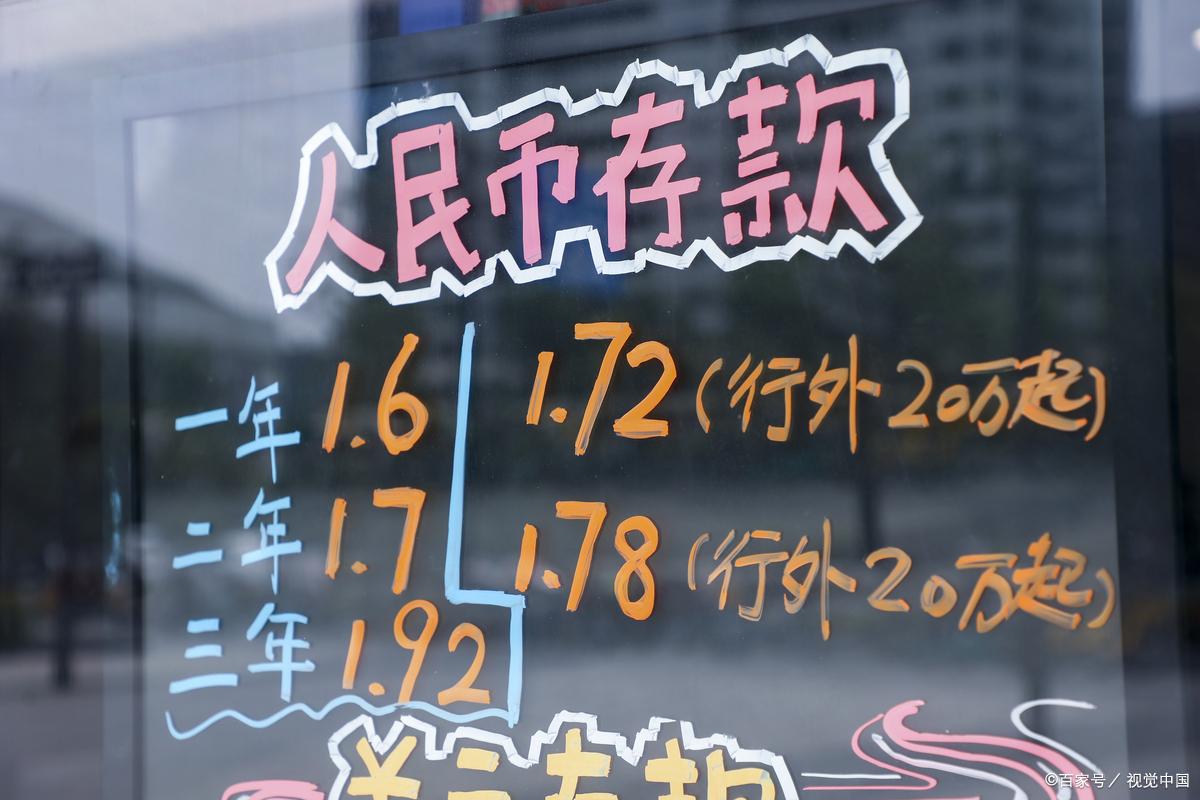 人民币存款
一年 1.6 1.72(行外20万起)
二年 1.7 1.78(行外20万起)
三年 1.92
美元存款
©百家号／视觉中国